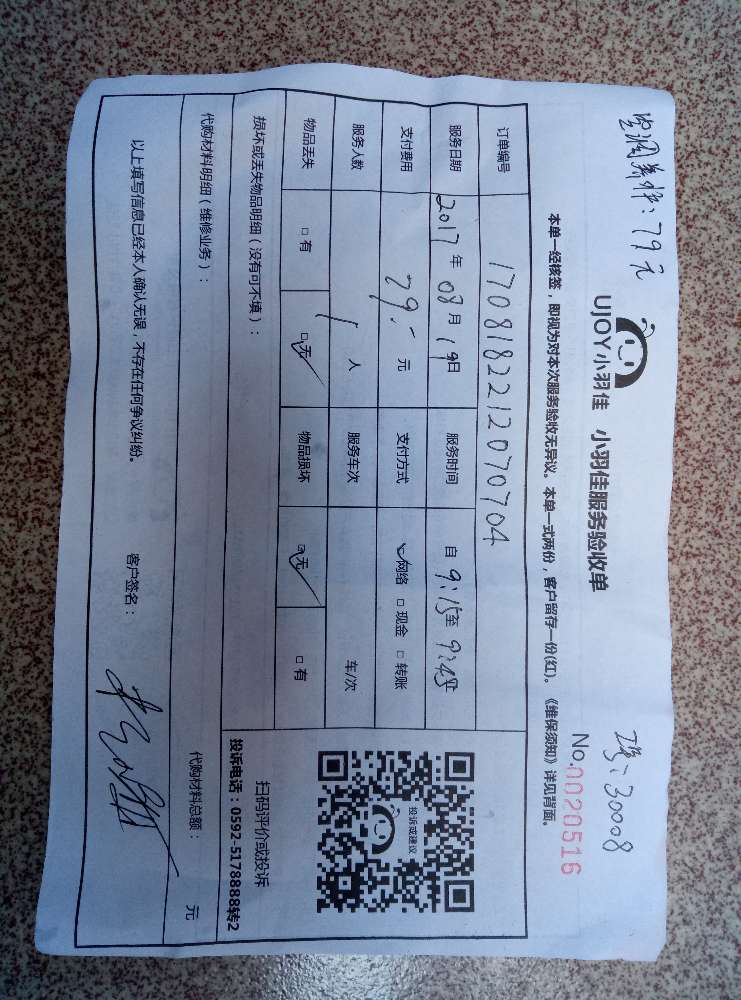 空调 : 79元
工号: 30008
UJOY小羽佳 小羽佳服务验收单
No.0020516
本单一经核签，即视为对本次服务验收无异议。本单一式两份，客户留存一份(红)。《维保须知》详见背面。
订单编号 1708182212070704
服务日期 2017年08月19日 服务时间 自9:15至9:45
支付费用 79.-元 支付方式 ☑网络 □现金 □转账
服务人数 1人 服务车次 车/次
物品丢失 □有 ☑无 物品损坏 ☑无 □有
投诉或建议
扫码评价或投诉
投诉电话：0592-5178888转2
损坏或丢失物品明细（没有可不填）：
代购材料明细（维修业务）： 代购材料总额： 元
以上填写信息已经本人确认无误，不存在任何争议纠纷。 客户签名：